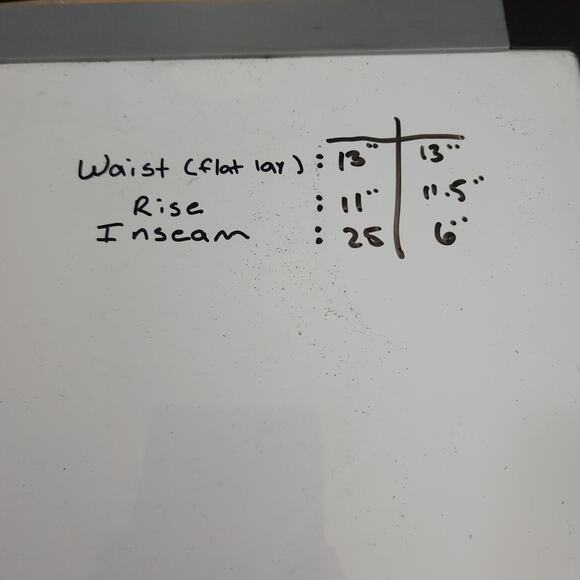 Waist (flat lay) : 13" 13"
Rise : 11" 11.5"
Inseam : 25 6"